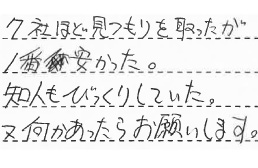 7社ほど見つもりを取ったが
1番安かった。
知人もびっくりしていた。
又何かあったらお願いします。